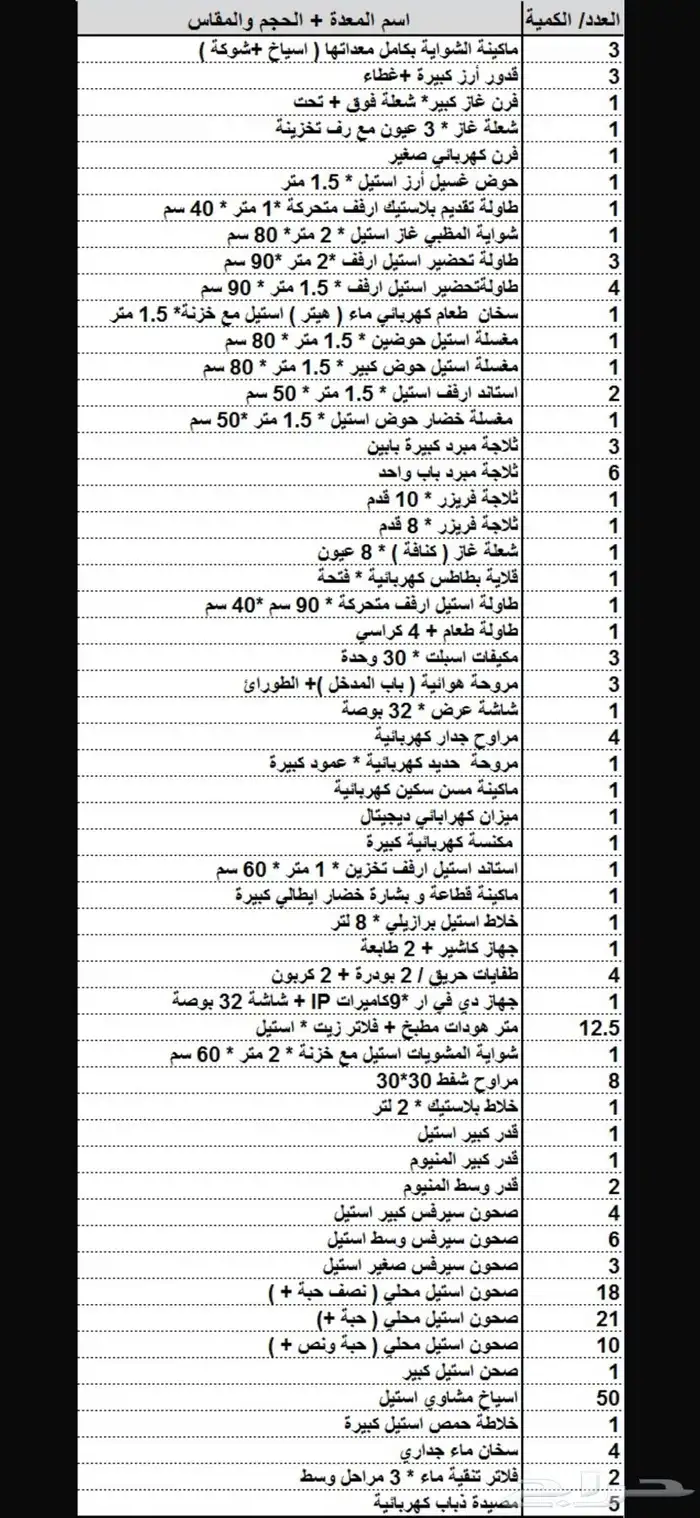 العدد/ الكمية اسم المعدة + الحجم والمقاس
3 ماكينة الشواية بكامل معداتها ( اسياخ +شوكة )
3 قدور أرز كبيرة +غطاء
1 فرن غاز كبير* شعلة فوق + تحت
1 شعلة غاز * 3 عيون مع رف تخزينة
1 فرن كهربائي صغير
1 حوض غسيل أرز استيل * 1.5 متر
1 طاولة تقديم بلاستيك ارفف متحركة *1 متر * 40 سم
1 شواية المظبي غاز استيل * 2 متر* 80 سم
3 طاولة تحضير استيل ارفف *2 متر *90 سم
4 طاولةتحضير استيل ارفف * 1.5 متر * 90 سم
1 سخان طعام كهربائي ماء ( هيتر ) استيل مع خزنة* 1.5 متر
1 مغسلة استيل حوضين * 1.5 متر * 80 سم
1 مغسلة استيل حوض كبير * 1.5 متر * 80 سم
2 استاند ارفف استيل * 1.5 متر * 50 سم
1 مغسلة خضار حوض استيل * 1.5 متر *50 سم
3 ثلاجة مبرد كبيرة بابين
6 ثلاجة مبرد باب واحد
1 ثلاجة فريزر * 10 قدم
1 ثلاجة فريزر * 8 قدم
1 شعلة غاز ( كنافة ) * 8 عيون
1 قلاية بطاطس كهربائية * فتحة
1 طاولة استيل ارفف متحركة * 90 سم *40 سم
1 طاولة طعام + 4 كراسي
3 مكيفات اسبلت * 30 وحدة
3 مروحة هوائية ( باب المدخل )+ الطورائ
1 شاشة عرض * 32 بوصة
4 مراوح جدار كهربائية
1 مروحة حديد كهربائية * عمود كبيرة
1 ماكينة مسن سكين كهربائية
1 ميزان كهرابائي ديجيتال
1 مكنسة كهربائية كبيرة
1 استاند استيل ارفف تخزين * 1 متر * 60 سم
1 ماكينة قطاعة و بشارة خضار ايطالي كبيرة
1 خلاط استيل برازيلي * 8 لتر
1 جهاز كاشير + 2 طابعة
4 طفايات حريق / 2 بودرة + 2 كربون
1 جهاز دي في ار *9كاميرات IP + شاشة 32 بوصة
12.5 متر هودات مطبخ + فلاتر زيت * استيل
1 شواية المشويات استيل مع خزنة * 2 متر * 60 سم
8 مراوح شفط 30*30
1 خلاط بلاستيك * 2 لتر
1 قدر كبير استيل
1 قدر كبير المنيوم
2 قدر وسط المنيوم
4 صحون سيرفس كبير استيل
6 صحون سيرفس وسط استيل
3 صحون سيرفس صغير استيل
18 صحون استيل محلي ( نصف حبة + )
21 صحون استيل محلي ( حبة +)
10 صحون استيل محلي ( حبة ونص + )
1 صحن استيل كبير
50 اسياخ مشاوي استيل
1 خلاطة حمص استيل كبيرة
4 سخان ماء جداري
2 فلاتر تنقية ماء * 3 مراحل وسط
5 مصيدة ذباب كهربائية
حراج